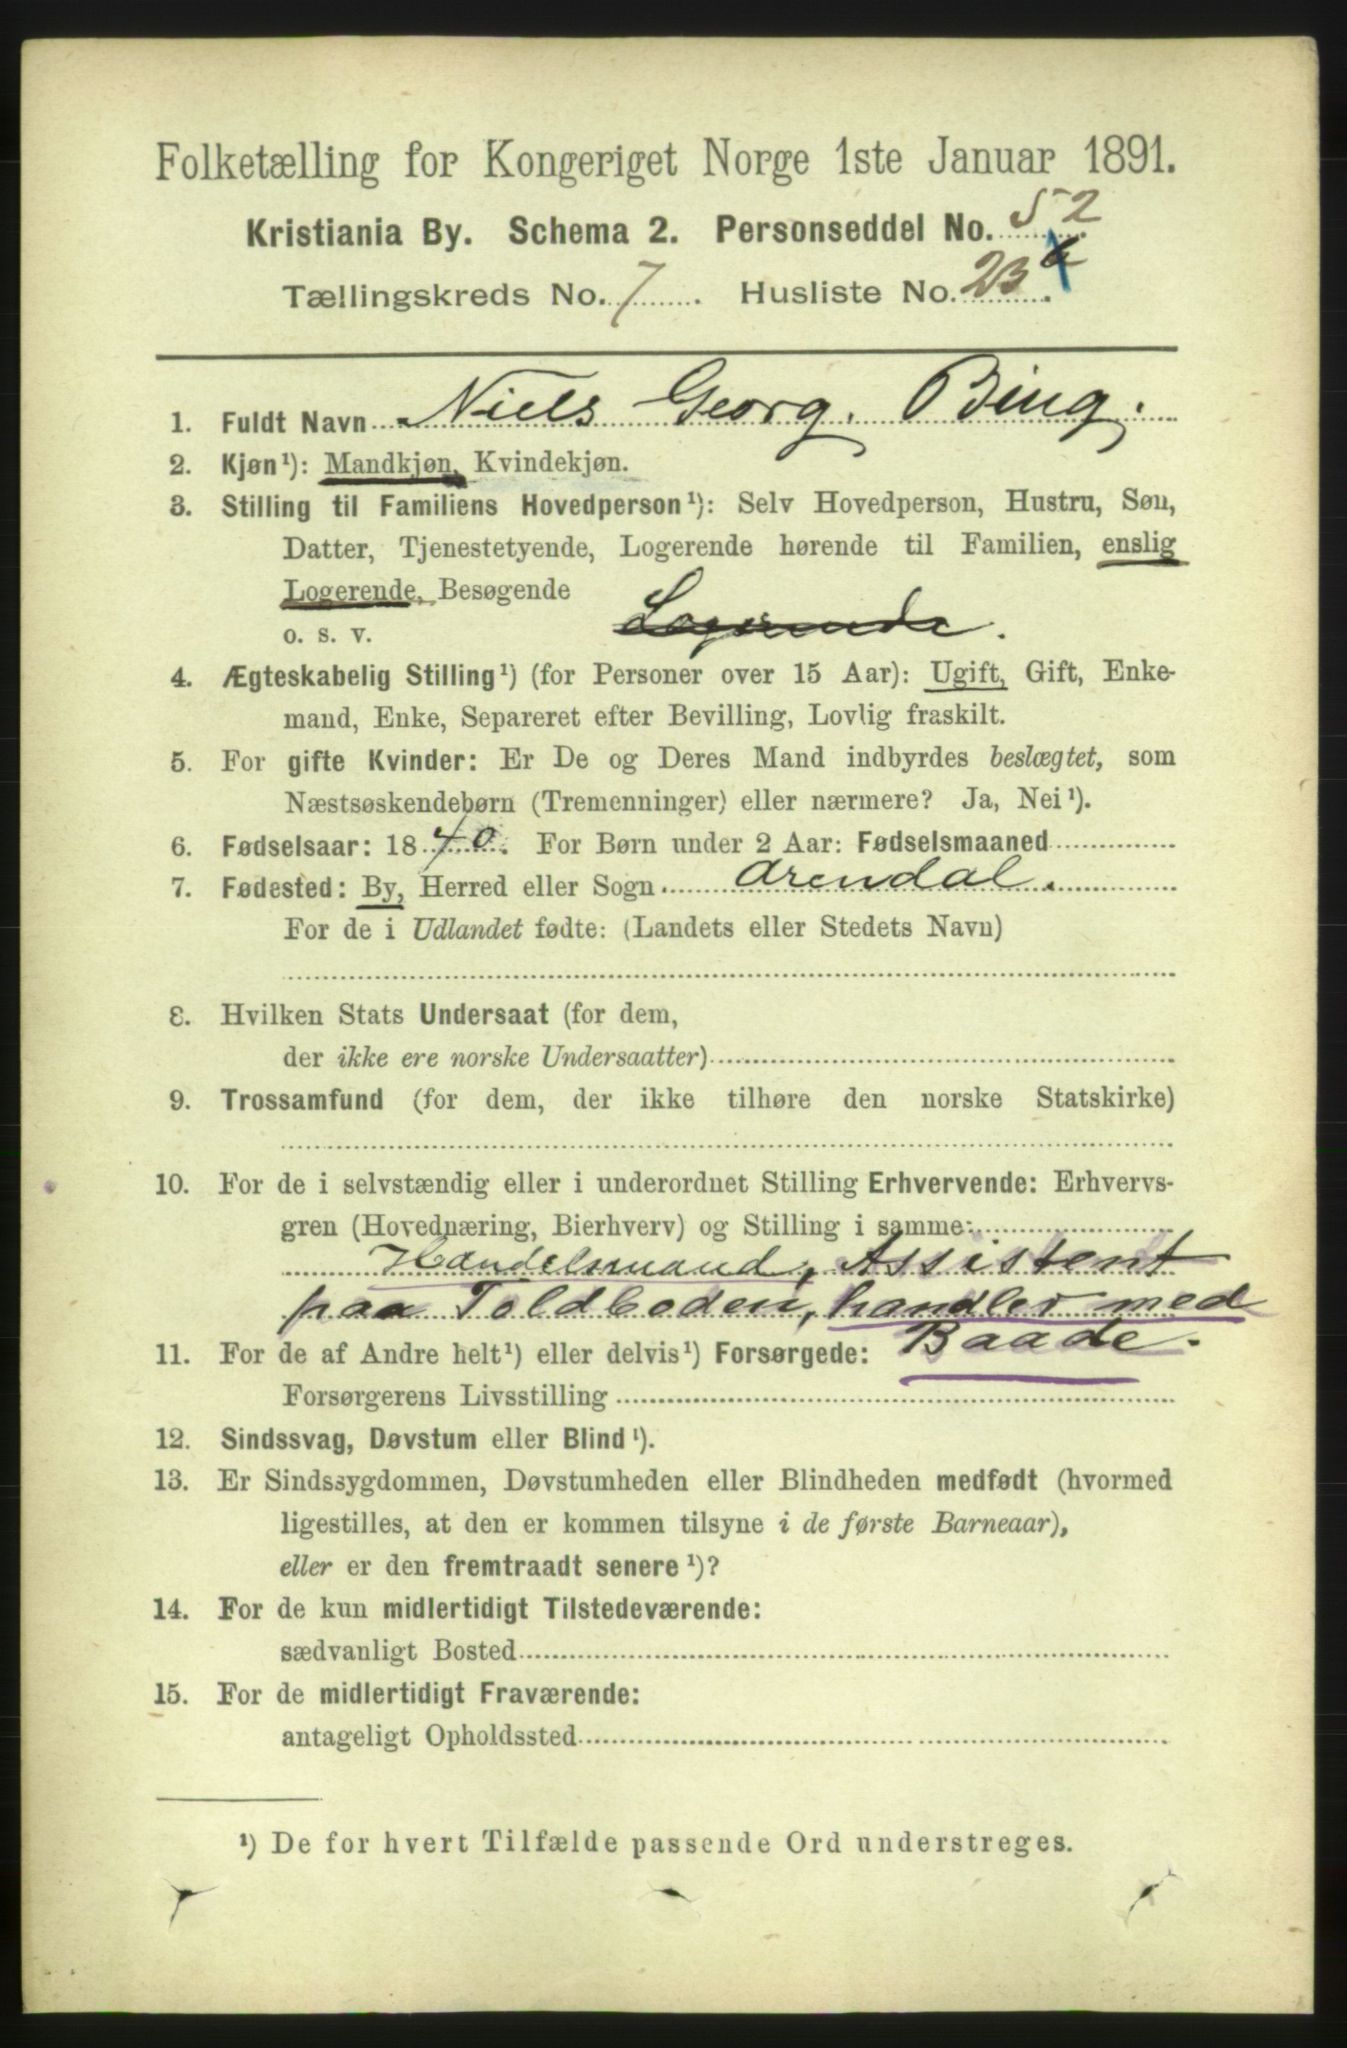 Folketælling for Kongeriget Norge 1ste Januar 1891.
Kristiania By. Schema 2. Personseddel No. 52
Tællingskreds No. 7. Husliste No. 23
1. Fuldt Navn Niels Georg. Bing.
2. Kjøn¹): Mandkjøn, Kvindekjøn.
3. Stilling til Familiens Hovedperson¹): Selv Hovedperson, Hustru, Søn,
Datter, Tjenestetyende, Logerende hørende til Familien, enslig
Logerende, Besøgende
o. s. v. Logerende.
4. Ægteskabelig Stilling¹) (for Personer over 15 Aar): Ugift, Gift, Enke-
mand, Enke, Separeret efter Bevilling, Lovlig fraskilt.
5. For gifte Kvinder: Er De og Deres Mand indbyrdes beslægtet, som
Næstsøskendebørn (Tremenninger) eller nærmere? Ja, Nei¹).
6. Fødselsaar: 1840. For Børn under 2 Aar: Fødselsmaaned
7. Fødested: By, Herred eller Sogn Arendal.
For de i Udlandet fødte: (Landets eller Stedets Navn)
8. Hvilken Stats Undersaat (for dem,
der ikke ere norske Undersaatter)
9. Trossamfund (for dem, der ikke tilhøre den norske Statskirke)
10. For de i selvstændig eller i underordnet Stilling Erhvervende: Erhvervs-
gren (Hovednæring, Bierhverv) og Stilling i samme:
Handelsmand, Assistent
paa Toldboden, handler med
Baade.
11. For de af Andre helt¹) eller delvis¹) Forsørgede:
Forsørgerens Livsstilling
12. Sindssvag, Døvstum eller Blind¹).
13. Er Sindssygdommen, Døvstumheden eller Blindheden medfødt (hvormed
ligestilles, at den er kommen tilsyne i de første Barneaar),
eller er den fremtraadt senere¹)?
14. For de kun midlertidigt Tilstedeværende:
sædvanligt Bosted
15. For de midlertidigt Fraværende:
antageligt Opholdssted
¹) De for hvert Tilfælde passende Ord understreges.